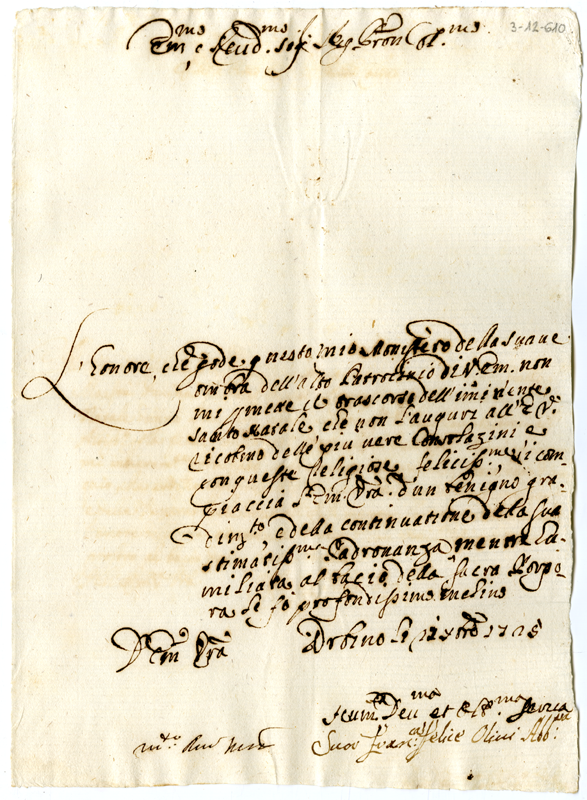 3-12-610
Em.mo e Reud.mo Sig.r Sig.r Pron Col.mo
L'honore, che gode questo mio Monistero della suaue
ombra dell'alto Patrocinio di V. Em. non
mi permette il trascorso dell'iminente
Santo Natale che non l'auguri all' E. V.
ricolmo delle più vere Consolazini e
con queste Religiose felicis.me si com-
piaccia l'Em. Vra d'un benigno gra-
dim.to, e della continuatione della sua
stimatis.ma Padronanza mentre hu-
miliata al bacio della sacra Porpo-
ra le fò profondissimo inchino
D. Em. Vra Vrbino li Xbre 1725
Hum.ma Deu.ma et Obb.ma Serva
Suor Fran.ca Felice Olivi Abb.